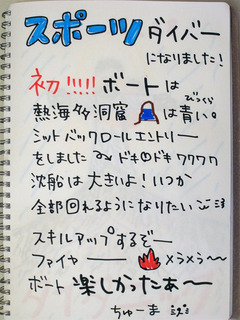 スポーツダイバー
になりました!
初!!!!!ボートは
熱海多洞窟 は青い。
びっくり
シットバックロールエントリー
をしました ドキドキワクワク
沈船は大きいよ!いつか
全部回れるようになりたい
スキルアップするぞー
ファイヤー メラメラ〜
ボート楽しかったぁ〜
ちゅーま